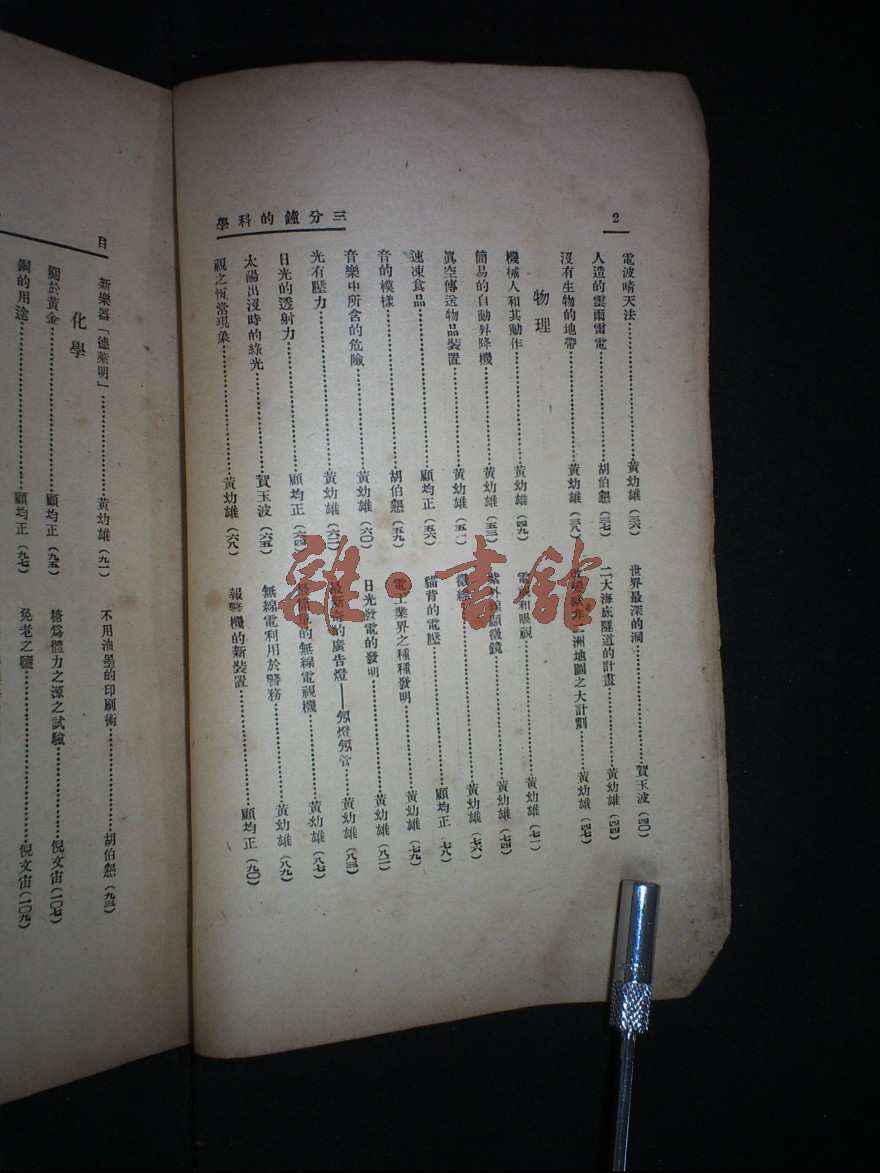 2
三分鐘的科學
電波晴天法 黃幼雄(三六)
人造的雲雨雷電 胡伯懇(三七)
沒有生物的地帶 黃幼雄(三八)
世界最深的洞 賀玉波(四〇)
二大海底隧道的計畫 黃幼雄(四四)
非二洲地圖之大計劃 黃幼雄(四七)
物理
機械人和其動作 黃幼雄(四九)
簡易的自動昇降機 黃幼雄(五三)
眞空傳送物品裝置 黃幼雄
速凍食品 顧均正(五六)
音的模樣 胡伯懇(五九)
音樂中所含的危險 黃幼雄(六〇)
光有壓力 黃幼雄
日光的透射力 顧均正(六四)
太陽出沒時的綠光 賀玉波(六五)
視之恆常現象 黃幼雄(六八)
和眼視 黃幼雄(七一)
紫外線顯微鏡 黃幼雄(七四)
黃幼雄(七六)
貓背的電壓 顧均正 七八)
電工業界之種種發明 黃幼雄(七九)
日光發電的發明 黃幼雄(八二)
最新奇的廣告燈——氖燈氖管 黃幼雄(八三)
最簡單的無線電視機 黃幼雄(八七)
無線電利用於警務 黃幼雄(八九)
報警機的新裝置 顧均正(九〇)
目
新樂器「德萊明」 黃幼雄(九一)
不用油墨的印刷術 胡伯懇(九三)
化學
關於黃金 顧均正(九五)
銅的用途 顧均正(九七)
糖爲體力之源之試驗 倪文宙(一〇七)
免老之鹽 倪文宙(一〇九)
雜·書館